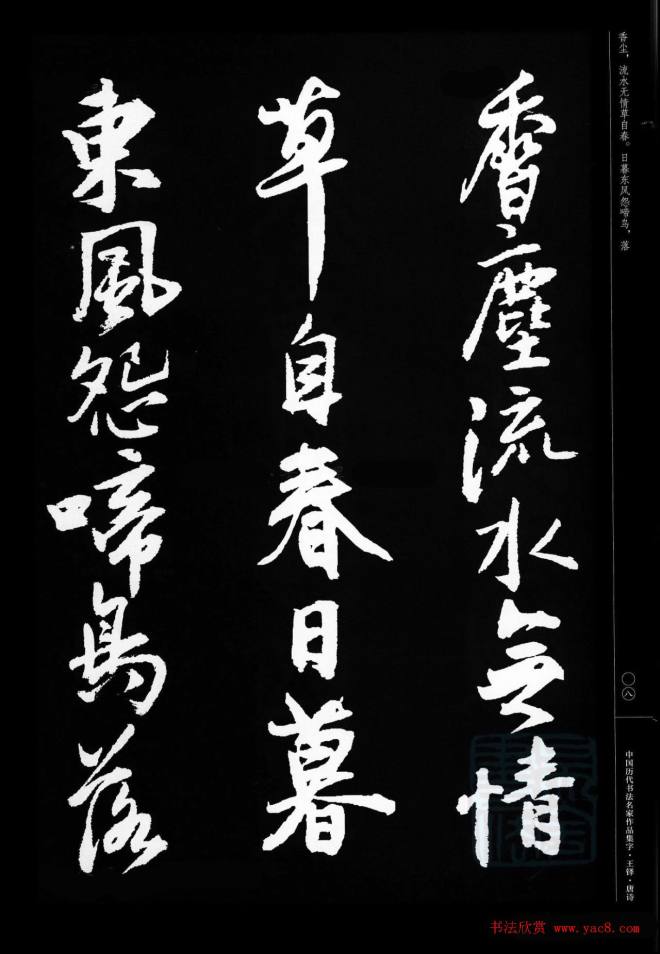 香塵流水無情
草自春日暮
東風怨啼鳥落
香尘，流水无情草自春。日暮东风怨啼鸟，落
〇八
中国历代书法名家作品集字·王铎·唐诗
书法欣赏 www.yac8.com